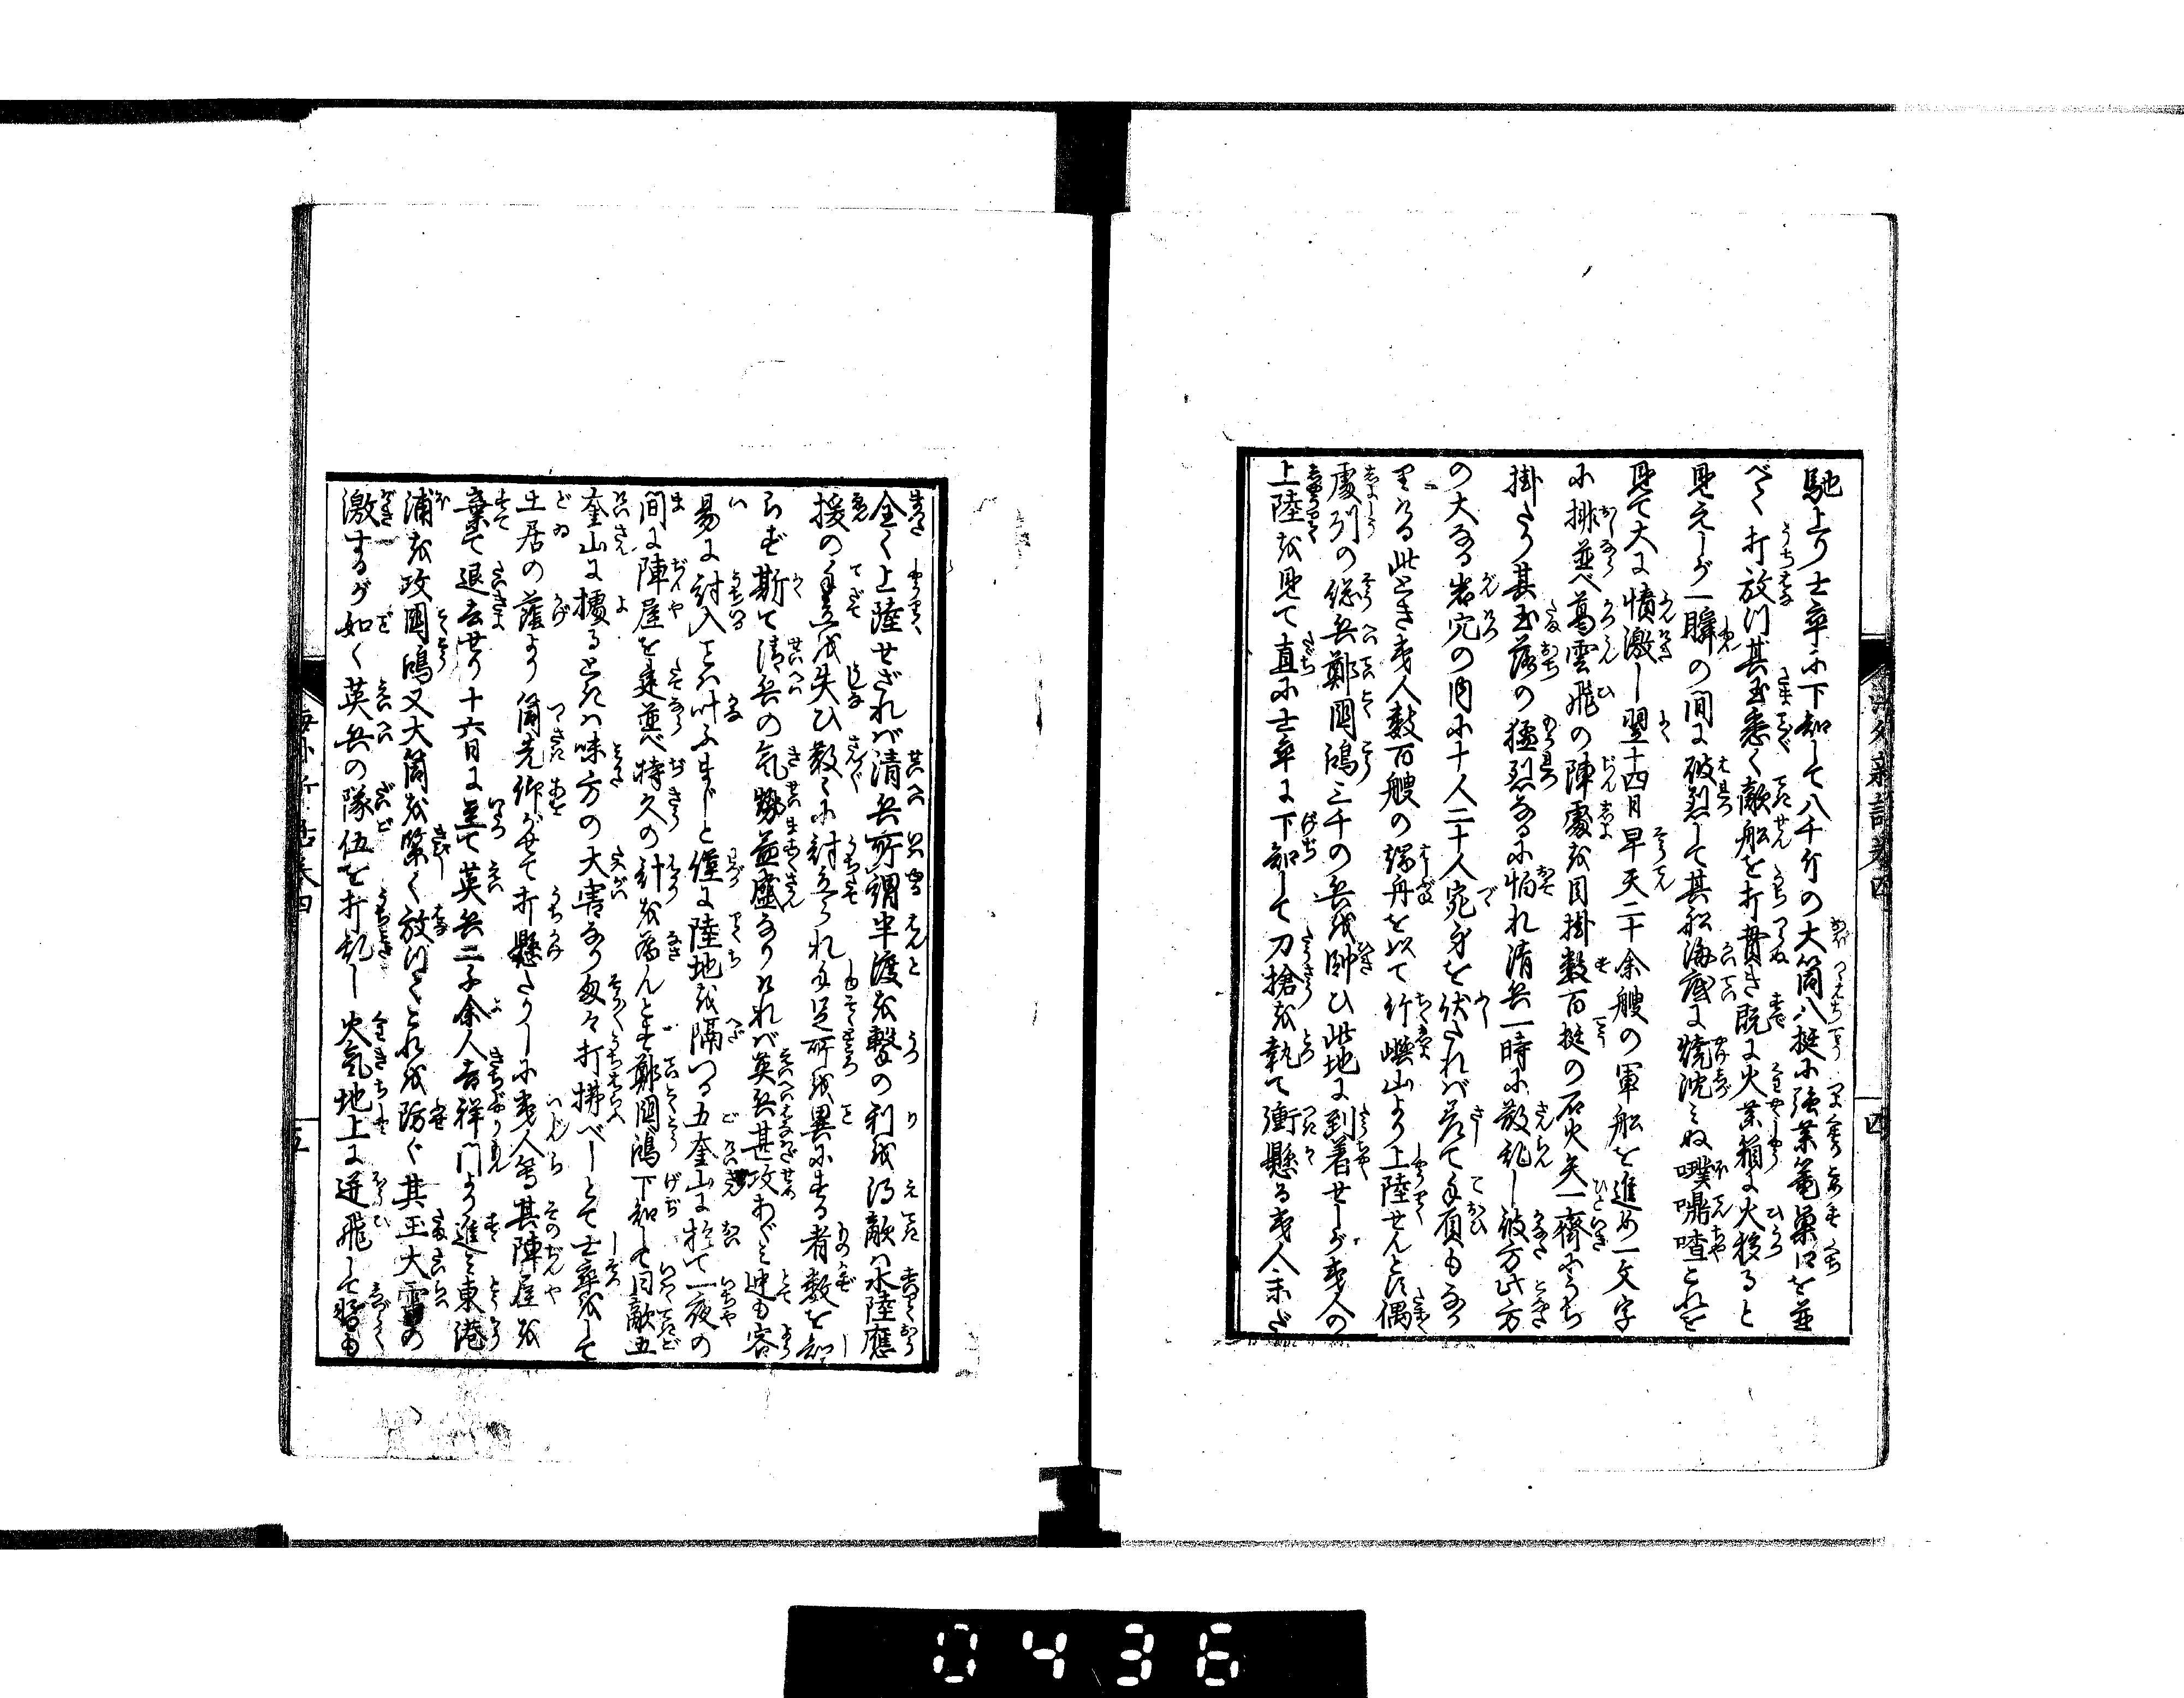 馳上り士卒に下知して八千斤の大筒八挺に強薬篭巣口を並
べて打放バ其玉悉く敵船を打貫き既に火薬箱に火移ると
見えしが一瞬の間に破烈して其船海底に焼沈ミぬ噗嚊喳これを
見て大に憤激し翌十四日早天二十余艘の軍船を進め一文字
に排並べ葛雲飛の陣処を目掛数百挺の石火矢一齊にうち
掛たり其玉落の猛烈なるに怕れ清兵一時に散乱し彼方此方
の大なる岩穴の内に十人二十人宛身を伏たれバ差て手負もなか
りける此とき夷人数百艘の端舟を以て竹嶼山より上陸せんとす偶
處州の総兵鄭國鴻三千の兵を帥ひ此地に到着せしが夷人の
上陸を見て直に士卒に下知して刀槍を執て衝懸る夷人未だ
海外新話巻四
四
全く上陸せざれバ清兵所謂半渡を撃の利を得敵ハ水陸應
援の手立を失ひ散々に討立られ手足所を異にする者数を知
らず斯て清兵の気勢益盛なりけれバ英兵甚攻あぐミ迚も容
易に討入ことハ叶ふまじと僅に陸地を隔つる五奎山に於て一夜の
間に陣屋を建並べ持久の計を為んとす鄭國鴻下知して曰敵五
奎山に據るときハ味方の大害なり疾々打拂べしとて士卒をして
土居の蔭より筒先仰がせて打懸たりしに夷人等其陣屋を
棄て退去せり十六日に至て英兵二千余人吉祥門より進ミ東港
浦を攻國鴻又大筒を緊く放ツてこれを防ぐ其玉大雷の
激するが如く英兵の隊伍を打乱し火気地上に迸飛して暫も
海外新話巻四
五
0436